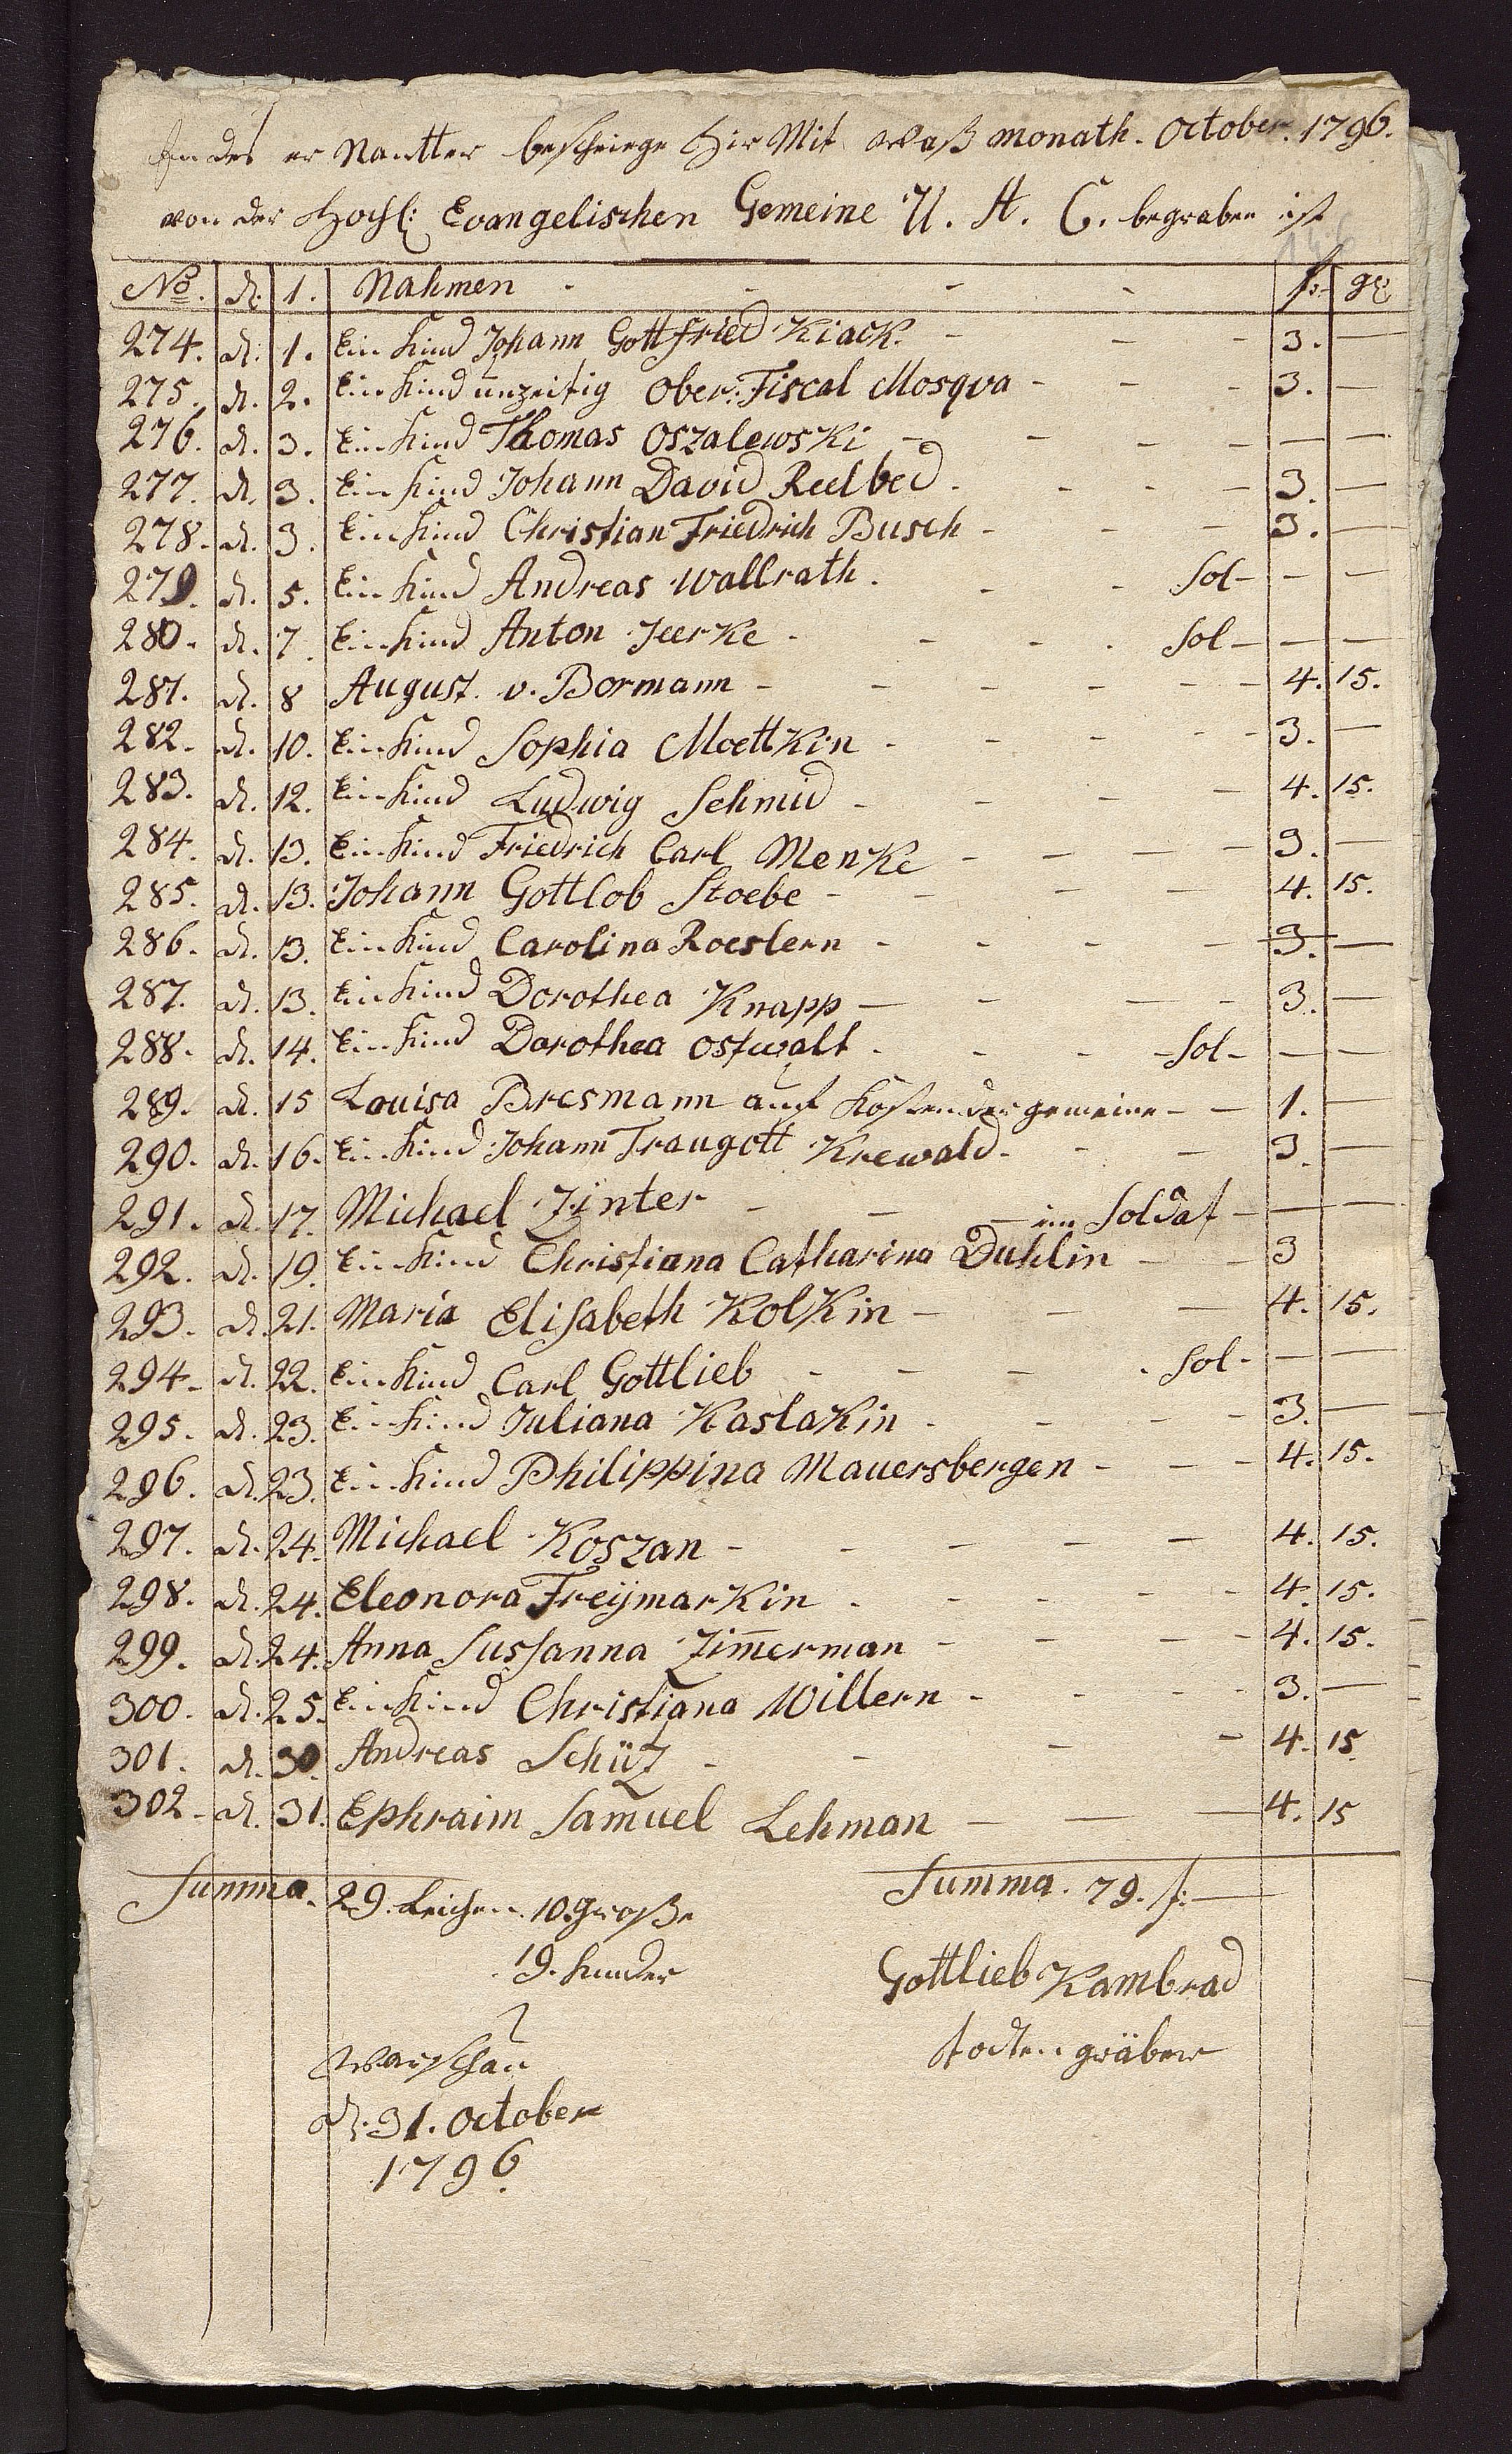 Endes er Nantter bescheiege Hir Mit waß monath. October. 1796.
von der Hochl: Evangelischen Gemeine U. A. C. begraben ist
No. d. 1. Nahmen - - - - f. gl
274. d. 1. Ein Kind Johann Gottfried Kiack. - - - 3. —
275. d. 2. Ein Kind unzeitig Ober: Fiscal Mosqva - - - 3. —
276. d. 3. Ein Kind Thomas Oszalewski - - - - — —
277. d. 3. Ein Kind Johann David Reelbed. - - - 3. —
278. d. 3. Ein Kind Christian Friedrich Busch - - - 3. —
279. d. 5. Ein Kind Andreas Wallrath. - - Sol - — —
280. d. 7. Ein Kind Anton Jeerke - - - Sol - — —
281. d. 8 August. v. Bormann - - - - - 4. 15.
282. d. 10. Ein Kind Sophia Moettkin - - - - 3. —
283. d. 12. Ein Kind Ludwig Schmid - - - - 4. 15.
284. d. 13. Ein Kind Friedrich Carl Menke - - - - 3. —
285. d. 13. Johann Gottlob Stoebe - - - - 4. 15.
286. d. 13. Ein Kind Carolina Roeslern - - - - 3. —
287. d. 13. Ein Kind Dorothea Knapp - - - - 3. —
288. d. 14. Ein Kind Dorothea Ostwalt. - - - Sol - — —
289. d. 15 Louisa Bresmann auf Kosten der gemeine - - 1. —
290. d. 16. Ein Kind Johann Traugott Krewald. - - 3. —
291. d. 17. Michael Zinter - - - ein Soldat - — —
292. d. 19. Ein Kind Christiana Catharina Duhlin - - 3
293. d. 21. Maria Elisabeth Kolkin - - - 4. 15.
294. d. 22. Ein Kind Carl Gottlieb - - - . Sol - — —
295. d. 23. Ein Kind Juliana Kaslakin - - - - 3. —
296. d. 23. Ein Kind Philippina Mauersbergen - - - 4. 15.
297. d. 24. Michael Koszan - - - - - 4. 15.
298. d. 24. Eleonora Freijmarkin . - - - - 4. 15.
299. d. 24. Anna Sussanna Zim̅erman - - - - 4. 15.
300. d. 25. Ein Kind Christiana Willern - - - - 3. —
301. d. 30. Andreas Schüz - - - - 4. 15.
302. d. 31. Ephraim Samuel Lehman - - - 4. 15
Summa. 29. Leichen. 10. Große Summa. 79. f: —
19. Kinder
Gottlieb Kambrad
todten gräber
Warschau
d. 31. October
1796.